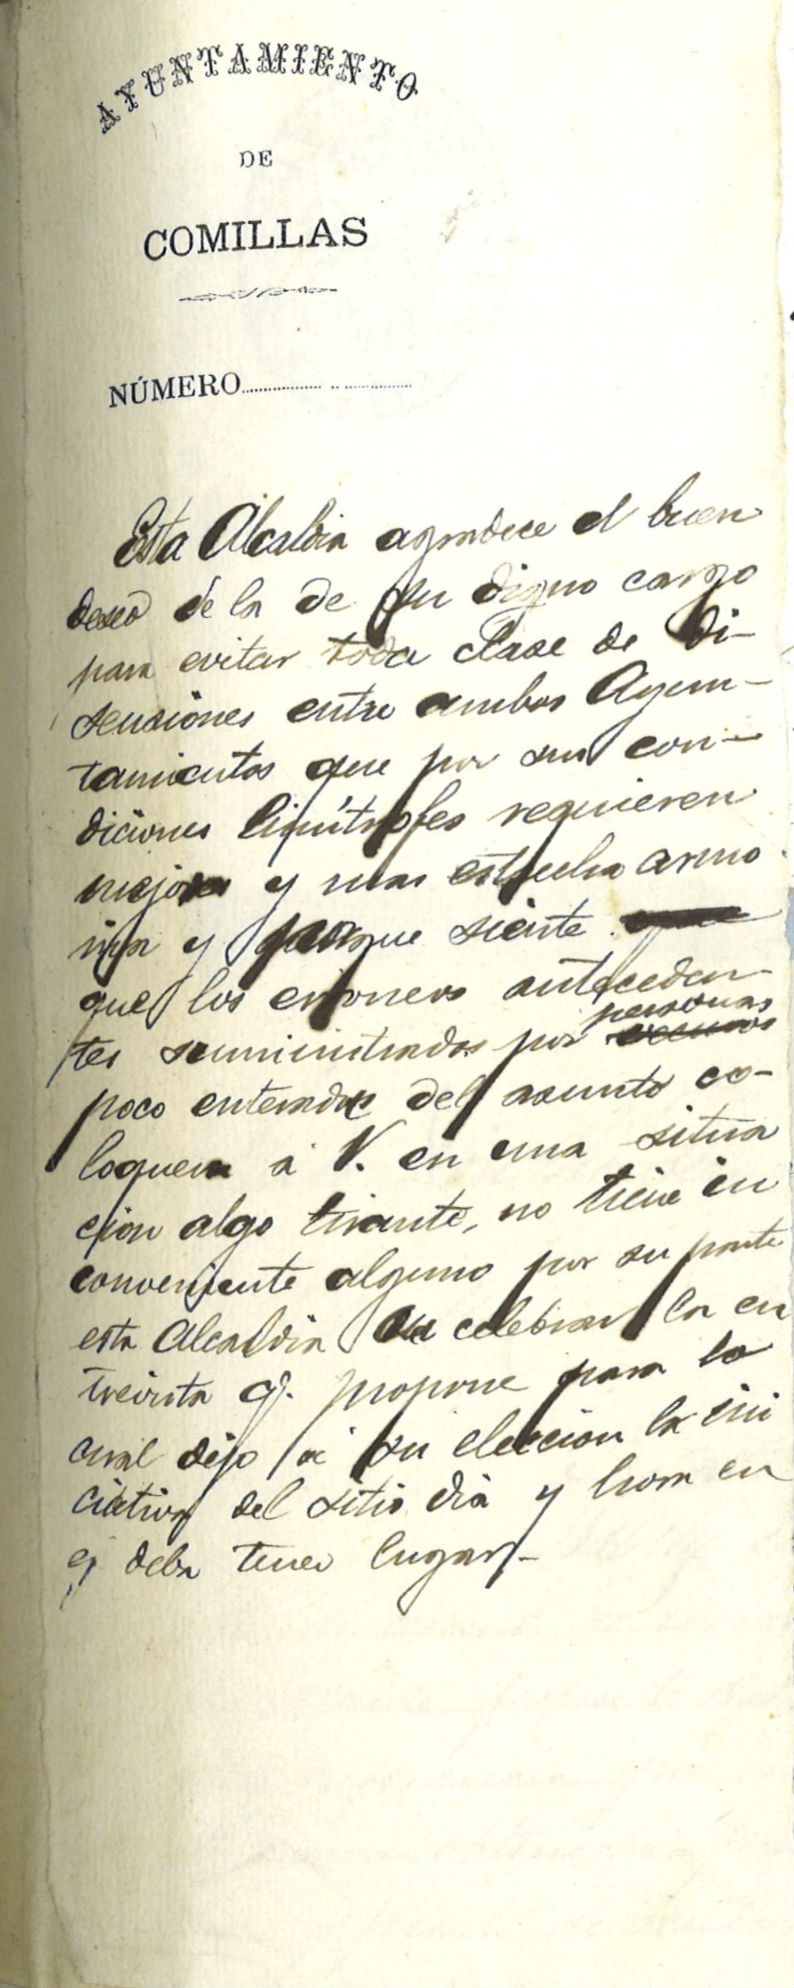 AYUNTAMIENTO
DE
COMILLAS
NÚMERO
Esta Alcaldia agradece el buen
deseo de la de su digno cargo
para evitar toda clase de di-
senciones entre ambos Ayun-
tamientos que por sus con-
diciones limítrofes requieren
mejor y mas estrecha armo
nia y porque siente
que los erroneos anteceden-
personas
tes suministrados por
poco enteradas del asunto co-
loquen a V. en una situa
cion algo tirante, no tiene in
conveniente alguno por su parte
esta Alcaldia de celebrar la en
trevista q. propone para lo
cual dejo a su eleccion la ini
ciativa del sitio dia y hora en
q. deba tener lugar.-